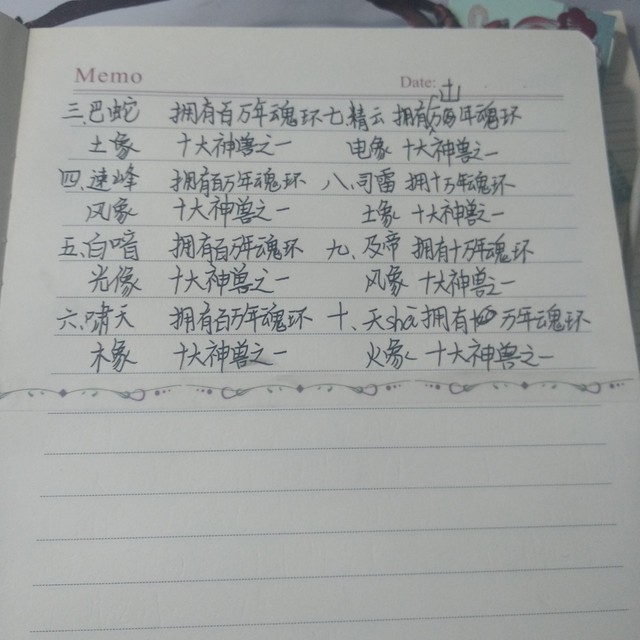 Memo
Date: 山
三.巴蛇 拥有百万年魂环 七.精云 拥有万年魂环
土象 十大神兽之一 电象 十大神兽之一
四.速峰 拥有百万年魂环 八.司雷 拥十万年魂环
风象 十大神兽之一 土象 十大神兽之一
五.白暗 拥有百万年魂环 九.及帝 拥有十万年魂环
光像 十大神兽之一 风象 十大神兽之一
六.啸天 拥有百万年魂环 十.天shā拥有 万年魂环
木象 十大神兽之一 火象 十大神兽之一